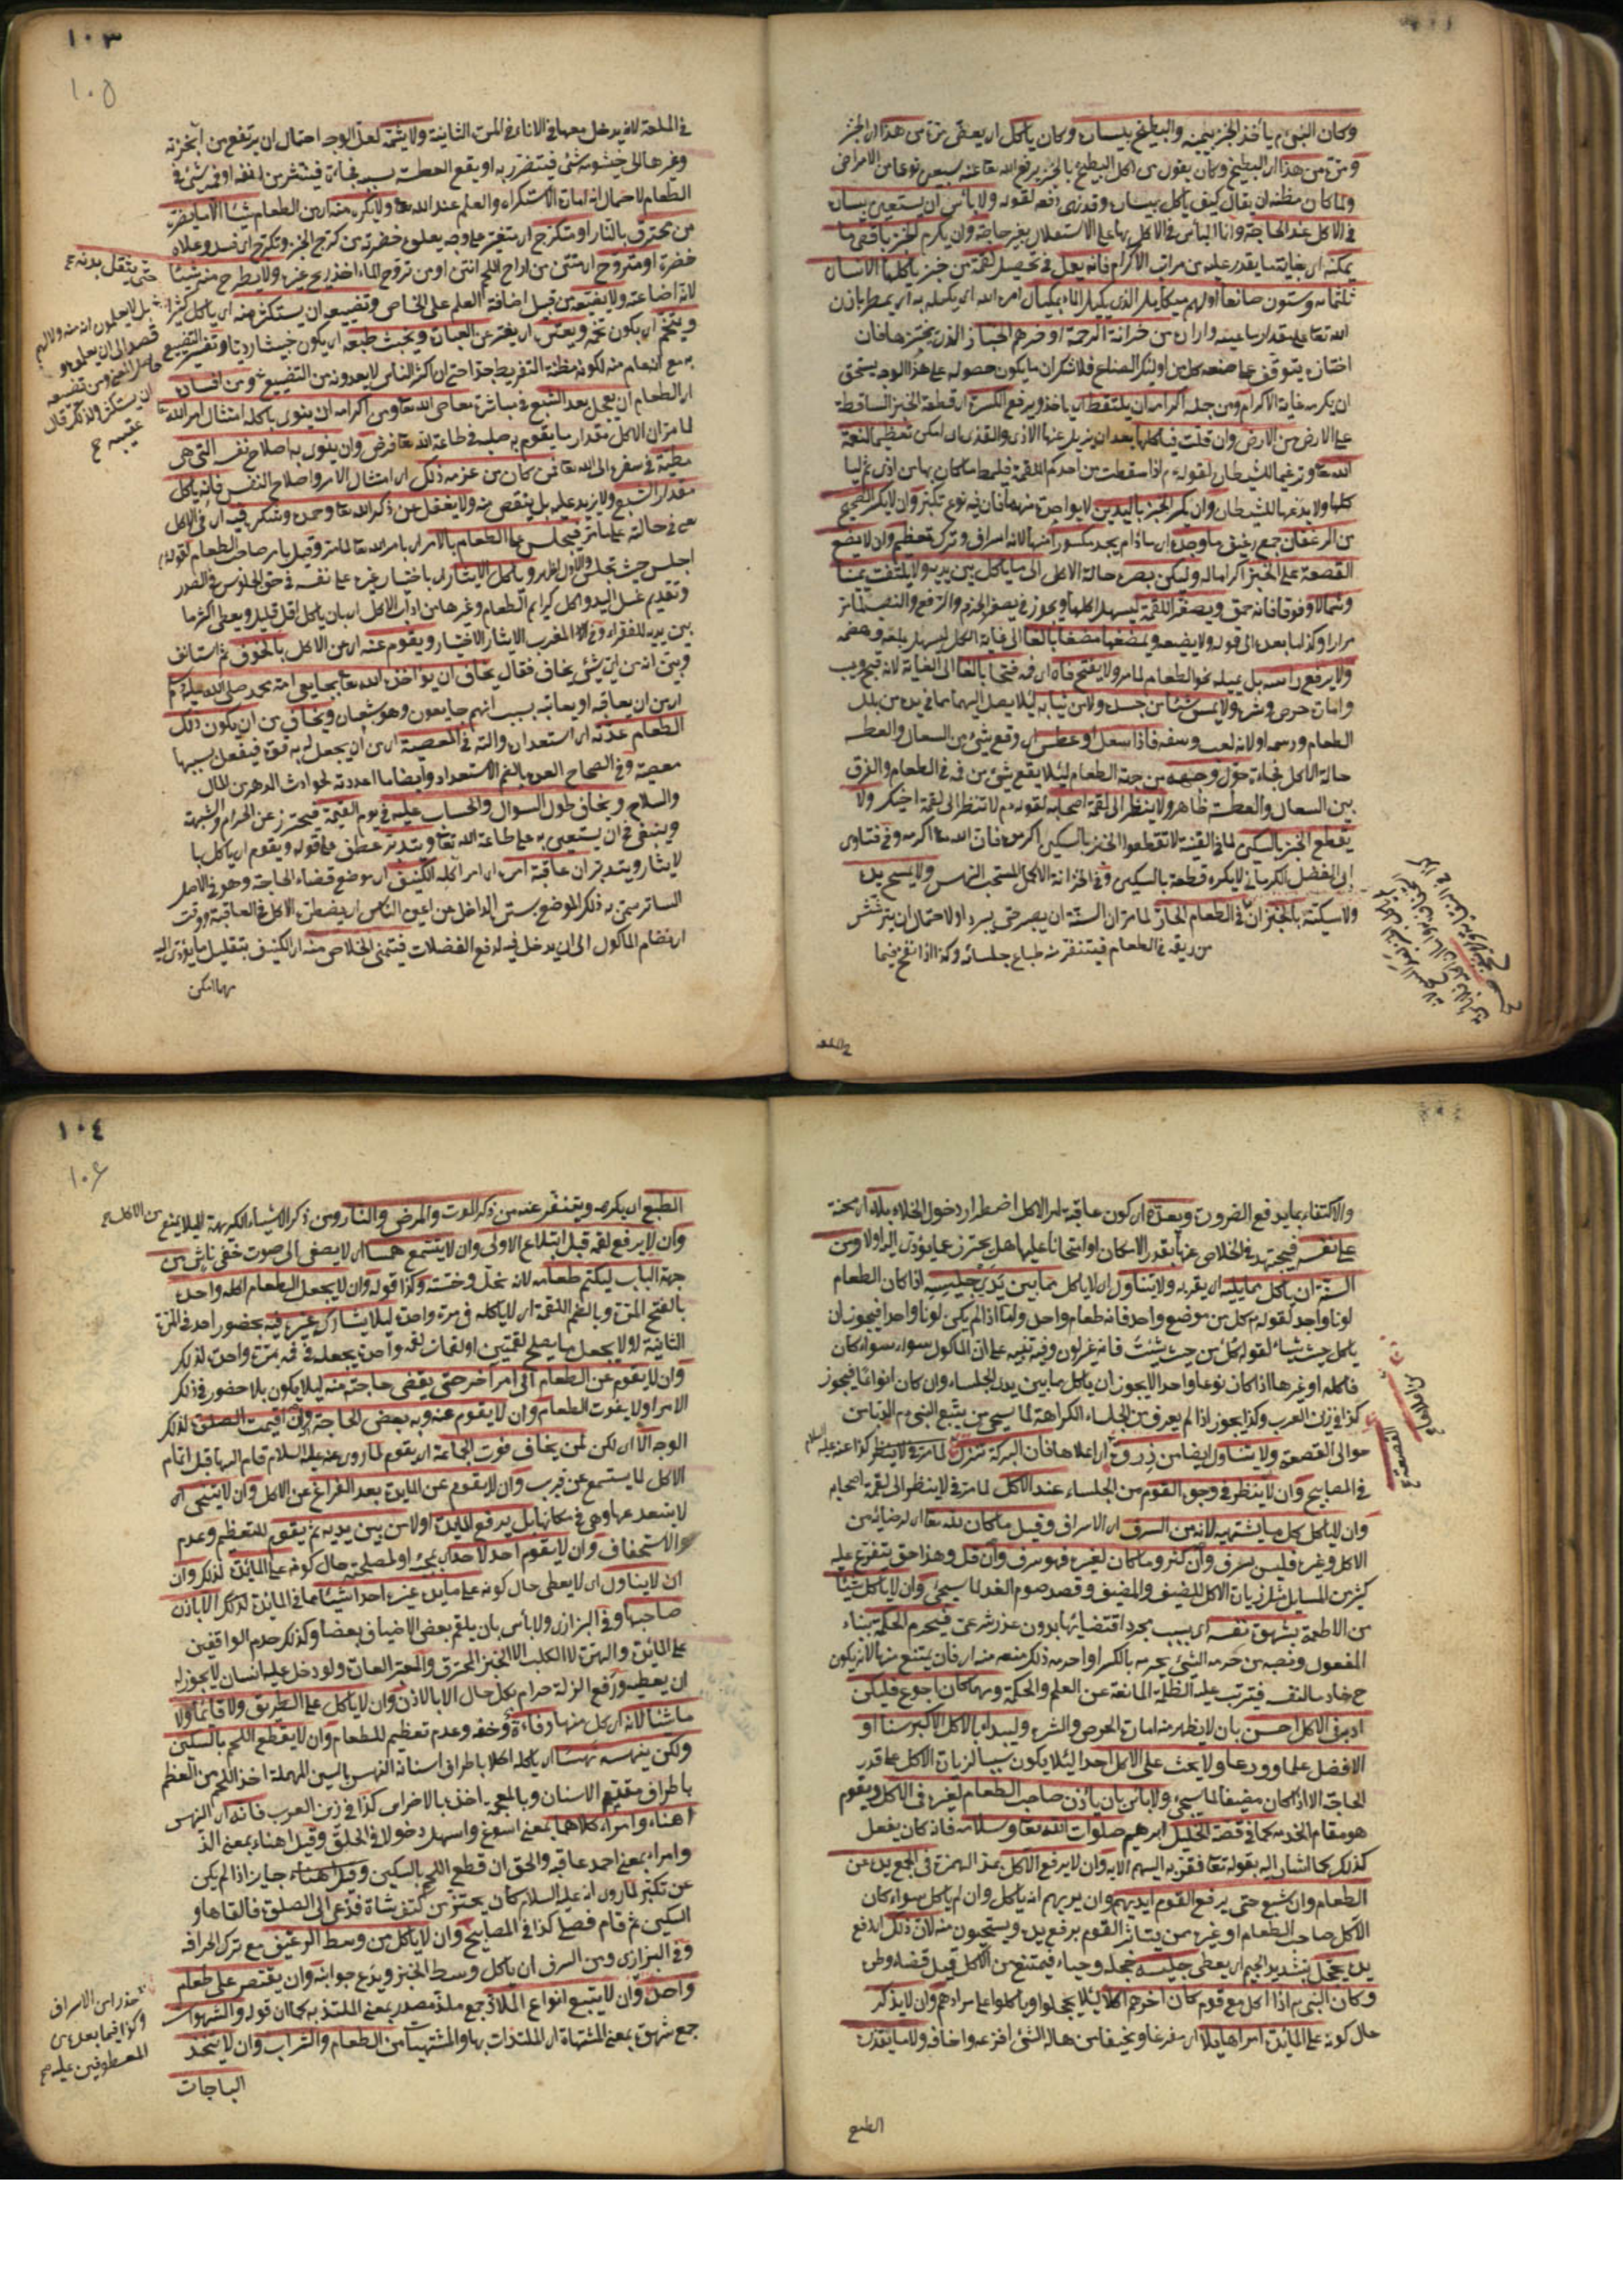 وكان النبي م يأخذ الخبز بيمينه والبطيخ بيساره وكان يأكل ان يعض مرة من هذا ان الخبز
ومرة من هذا ان البطيخ وكان يقول من اكل البطيخ بالخبز يرفع الله تعا عنه سبعين نوعا من الامراض
ولما كان مظنة ان يقال كيف يأكل بيساره وقد نهى دفعه لقوله ولا بأس ان يستعين بيساره
في الاكل عند الحاجة وانما البأس في الاكل بها على الاستقلال بغير حاجة وان يكرم الخبز باقصى ما
يمكنه اي بغاية ما يقدر عليه من مراتب الاكرام فانه يعمل في تحصيل لقمة من خبز يأكلها الانسان
ثلثمائة وستون صانعا اولهم ميكائيل الذي يكيل الماء بمكيال امره الله اي يكيله به اي يمطر باذن
الله تعا على مقدار ما عينه واراد من خزانة الرحمة وآخرهم الخباز الذي يخبزها فان
اختاره يتوقف على صنعة كل من اولئك الصناع فلا شك ان ما يكون حصوله على هذا الوجه يستحق
ان يكرمه غاية الاكرام ومن جملة اكرامه ان يلتقط اي يأخذ ويرفع الكسرة اي قطعة الخبز الساقطة
على الارض من الارض وان قلت فيأكلها بعد ان يزيل عنها الاذى والقذى ان امكن تعظيما لنعمة
الله تعا وترغيما للشيطان لقوله م اذا سقطت من احدكم اللقمة فليمط ما كان بها من اذى ثم ليا
كلها ولا يدعها للشيطان وان يكسر الخبز باليدين لا بواحدة منهما فان فيه نوع تكبر وان لا يكسر الصحيح
من الرغفان جمع رغيف ما وجده اي مادام يجد مكسورا منها لانه اسراف وترك تعظيم وان لا يضع
القصعة على الخبز اكراما له وليكن بصره حالة الاكل الى ما يأكل بين يديه ولا يلتفت يمينا
وشمالا وفوقا فانه حمق ويصغر اللقمة ليسهل اكلها ويجوز في يصغر الجزم والرفع والنصب لما مر
مرارا وكذا ما بعده الى قوله ولا يضيعه ويمضغها مضغا بالغا الى غاية الكل ليسهل بلعه وهضمه
ولا يرفع رأسه بل يميله نحو الطعام لما مر ولا يفتح فاه اي فمه فتحا بالغا الى الغاية لانه قبيح وعيب
وامارة حرص وشره ولا يمس شيئا من جسده ولا من ثيابه لئلا يصل اليهما ما في يده من بلل
الطعام ودسمه او لانه لعب وسفه فاذا سعل او عطس اي وقع شيئ من السعال والعطسة
حالة الاكل فجاءة حول وجهه من جهة الطعام لئلا يقع شيئ من فمه في الطعام والفرق
بين السعال والعطسة ظاهر ولا ينظر الى لقمة اصحابه لقوله م لا تنظر الى لقمة اخيك ولا
يقطع الخبز بالسكين لما في القنية لا تقطعوا الخبز بالسكين اكرموه فان الله تعا اكرمه وفي فتاوى
ابي الفضل الكرماني لا يكره قطعه بالسكين وفي الخزانة الاكمل المستحب النهس ولا يمسح يده
ولا سكينه بالخبز ان في الطعام الحار لما مر ان السنة ان يصبر حتى يبرد او لاحتمال ان ينتشر
من ريقه في الطعام فيتنفر منه طباع جلسائه وكذا اذا نفخ فيما
في الملعقة لانه يدخل معها في الاناء في المرة الثانية ولا يشمه لعل الوجه احتمال ان يرتفع من ابخرته
وغيرها الى خيشومه شئ فيتضرر به او يقع العطسة بسببه فجاءة فينتثر من انفه او فمه شئ في
الطعام لاحتمال انه امارة الاستكراه والعلم عند الله تعا ولا يكره منه اي من الطعام شيئا الا ما يضره
من محترق بالنار او متكرج اي متغير على وجه يعلوه خضرة من كرج الخبز وتكرج اي فسد وعلاه
خضرة او متروح اي منتن من اراح اللحم انتن او من تروح الماء اخذ ريح غيره ولا يطرح منه شيئا
لانه اضاعة ولا يضيعه من قبيل اضافة العلم على الخاص وتضييعه ان يستكثر منه اي يأكل كثيرا
حتى يثقل بدنه ح
ويتخم اي يكون تخمة ويعتر اي يفتر عن العبادة ويخبث طبعه اي يكون خبيثا رديا وتفسير التضييع
به مع انه عام منه لكونه مظنة التفريط جدا حتى ان اكثر الناس لا يعدونه من التضييع ومن افساده
بل لا يعلمون انه منه ولا لهم
قصد الى ان يعملوه و
حاصل المعنى ومن تضييعه
ان يستكثر ولذلك قال
عقيبه ح
اي الطعام ان يعجل بعد الشبع في مباشرة معاصي الله تعا ومن اكرامه ان ينوي باكله امتثال امر الله تعا
لما مر ان الاكل مقدار ما يقوم به صلبه في طاعة الله تعا فرض وان ينوي به اصلاح نفسه التي هي
مطيته في سفره الى الله تعا فمن كان من عزمه ذلك اي امتثال الامر واصلاح النفس فانه يأكل
مقدار الشبع ولا يزيد عليه بل ينقص منه ولا يغفل عن ذكر الله تعا وحمده وشكره فيه اي في الاكل
يعني في حالته على ما مر فيجلس على الطعام بالامر اي بامر الله تعا لما مر وقيل بامر صاحب الطعام لقوله م
اجلس حيث تجلس والاول اظهر ويأكل الايثار اي باختيار غيره على نفسه في حق الجلوس في الصدر
وتقديم غسل اليد واكل كرايم الطعام وغيرها من آداب الاكل اي بان يأكل اقل قليل ويعطي اكثر ما
بين يديه للفقراء وفي المغرب الايثار الاختيار ويقوم عنه اي من الاكل بالخوف ثم استأنف
وبين انه من اي شئ يخاف فقال يخاف ان يؤاخذه الله تعا بجايعي امة محمد صلى الله عليه وسلم
اي من ان يعاقبه او يعاتبه بسبب انهم جايعون وهو شبعان ويخاف من ان يكون ذلك
الطعام عدته اي استعداده والته في المعصية اي من ان يجعل له به قوة فيفعل بسببها
معصية وفي الصحاح العدة بالضم الاستعداد وايضا ما اعددته لحوادث الدهر من المال
والسلام ويخاف طول السوال والحساب عليه في يوم القيمة فيحترز عن الحرام والشبهة
وينبغي له ان يستعين به على طاعة الله تعا ويتدبر عطف على قوله ويقوم اي يأكل با
لايثار ويتدبر ان عاقبة امره اي امر آكله الكنيف اي موضع قضاء الحاجة وهو في الاصل
الساتر سمي به ذلك الموضع يستر الداخل عن اعين الناس اي يضطر الاكل في العاقبة ووقت
انهضام المأكول الى ان يدخل فيه لدفع الفضلات فيتمنى الخلاص منه اي الكنيف بتقليل ما يؤدي اليه
مهما امكن
والاكتفاء بما يدفع الضرورة ويعده اي كون عاقبة امر الاكل اضطرار دخول الخلاء بلاء اي محنة
على نفسه فيجتهد في الخلاص عنها بقدر الامكان او امتحانا عليها هل يحترز عما يؤدي اليه اولا ومن
السنة ان يأكل بما يليه اي يقربه ولا يتناول اي لا يأكل بما بين يدي جليسه اذا كان الطعام
لونا واحدا لقوله م كل من موضع واحد فانه طعام واحد واما اذا لم يكن لونا واحدا فيجوز ان
يأكل حيث شاء لقوله م كل من حيث شئت فانه غير لون وفيه تنبيه على ان المأكول سواء سواء كان
فاكهة او غيرها اذا كان نوعا واحدا لا يجوز ان يأكل ما بين يدي الجلساء وان كان انواعا فيجوز
كذا في زين العرب وكذا يجوز اذا لم يعرف من الجلساء الكراهة لما سيجئ من تتبع النبي م الدباء من
حوالي القصعة ولا يتناول ايضا من ذروة اي اعلاها فان البركة تنزل لما مر في لا ينظر كذا عنه عليه السلام
القصعة ح
في المصابيح وان لا ينظر في وجوه القوم من الجلساء عند الاكل لما مر في لا ينظر الى لقمة اصحابه
وان لا يأكل كل ما يشتهيه لانه من السرف اي الاسراف وقيل ما كان لله تعا اي لرضائه من
الاكل وغيره فليس بسرف وان كثر وما كان لغيره فهو سرف وان قل وهذا حق يتفرع عليه
كثير من المسايل مثل زيادة الاكل للضيف والمضيف وقصد صوم الغد لما سيجئ وان لا يأكل شيئا
من الاطعمة بشهوة نفسه اي بسبب مجرد اقتضائها بدون عذر شرعي فيحرم الحكمة ببناء
المفعول ونصبه من حرمه الشئ يحرمه بالكسر او احرمه ذلك منعه منه اي فان يمتنع منها لانه يكون
ح خادما لنفسه فيترتب عليه الظلمة المانعة عن العلم والحكمة ومهما كان اجوع فليكن
ادبه في الاكل احسن بان لا يظهر منه امارة الحرص والشره وليبدأ بالاكل الاكبر سنا او
الافضل علما وورعا ولا يحث على الاكل احدا لئلا يكون سببا لزيادة الاكل على قدر
الحاجة الا اذا كان مضيفا لما سيجئ ولا بأس بان يأذن صاحب الطعام لغيره في الاكل ويقوم
هو مقام الخدمة كما في قصة الخليل ابرهيم صلوات الله تعا وسلامه فانه كان يفعل
كذلك كما اشار اليه بقوله تعا فقربه اليهم الآية وان لا يرفع الآكل بمد الهمزة في الجمع يده عن
الطعام وان شبع حتى يرفع القوم ايديهم وان يريهم انه يأكل وان لم يأكل سواء كان
الآكل صاحب الطعام او غيره ممن يتأثر القوم برفع يده ويستحيون منه لان ذلك اي رفع
يده يخجل بتشديد الجيم اي يعطي جليسه خجلة وحياء فيمتنع من الاكل قبل قضاء وطره
وكان النبي م اذا اكل مع قوم كان آخرهم اكلا لئلا يخجلوا ويأكلوا على مرادهم وان لا يذكر
حال كونه على المائدة امرا هايلا اي مفزعا ومخيفا من هاله الشئ افزعه واخافه ولا ما يقذره
الطبع
الطبع اي يكرهه ويتنفر عنه من ذكر الموت والمرض والنار ومن ذكر الاشياء الكريهة لئلا يمتنع من الاكل ح
وان لا يرفع لقمة قبل ابتلاع الاولى وان لا يتسمع همسا اي لا يصغي الى صوت خفي ناش من
جهة الباب ليكتم طعامه لانه بخل وخسة وكذا قوله وان لا يجعل الطعام اكلة واحدة
بالفتح المرة وبالضم اللقمة اي لا يأكله في مرة واحدة لئلا يشارك غيره فيه بحضور احد في المرة
الثانية او لا يجعل ما يصلح لقمتين او لقمات لقمة واحدة يجعله في فمه بمرة واحدة لذلك
وان لا يقوم عن الطعام الى امر آخر حتى يقضي حاجته منه لئلا يكون بلا حضور في ذلك
الامر او لا يفوت الطعام وان لا يقوم عنه وبه بعض الحاجة وان اقيمت الصلوة لذلك
الوجه الا ان لكن لمن يخاف فوت الجماعة ان يقوم لما روي عنه عليه السلام قام اليها قبل اتمام
الاكل لما يستمع عن قريب وان لا يقوم عن المايدة بعد الفراغ عن الاكل وان لا يتنحى اي
لا يبتعد عنها وهي في مكانها بل يرفع المايدة اولا من بين يديه ثم يقوم للتعظيم وعدم
الاستخفاف وان لا يقوم احد لاحد اي بمجيئه او لمصلحته حال كونه على المائدة لذلك وان
ان لا يناول اي لا يعطي حال كونه على مايدة غيره احدا شيئا مما في المائدة لذلك الا باذن
صاحبها وفي البزازي ولا بأس بان يلقم بعض الاضياف بعضا وكذلك خدم الواقفين
على المائدة والهرة لا الكلب الا الخبز المحترق والمعتر العادة ولو دخل عليه انسان لا يجوز له
ان يعطيه ورفع الزلة حرام بكل حال الا بالاذن وان لا يأكل على الطريق ولا قائما ولا
ماشيا لانه اي كل منها دناءة وخفة وعدم تعظيم للطعام وان لا يقطع اللحم بالسكين
ولكن ينهسه نهسا اي يأكله اكلا باطراف اسنانه النهس بالسين المهملة اخذ اللحم من العظم
باطراف مقدم الاسنان وبالمعجمة اخذه بالاضراس كذا في زين العرب فانه اي النهس
اهنأ وامرأ كلاهما بمعنى اسوغ واسهل دخولا في الحلق وقيل اهنأ بمعنى الذ
وامرأ بمعنى احمد عاقبة والحق ان قطع اللحم بالسكين جايز اذا لم يكن
عن تكبر لما روي انه عليه السلام كان يحتز من كتف شاة فدعي الى الصلوة فالقاها و
السكين ثم قام فصلى كذا في المصابيح وان لا يأكل من وسط الرغيف مع ترك اطرافه
وفي البزازي ومن السرف ان يأكل وسط الخبز ويدع جوانبه وان يقتصر على طعام
واحد وان لا يتتبع انواع الملاذ جمع ملذ مصدر بمعنى الملتذ به كما ان قوله والشهوات
جمع شهوة بمعنى المشتهاة اي الملتذات بها والمشتهيات من الطعام والشراب وان لا يتخذ
حذرا من الاسراف
وكذا فيما بعده من
المعطوفين عليه ح
الباجات